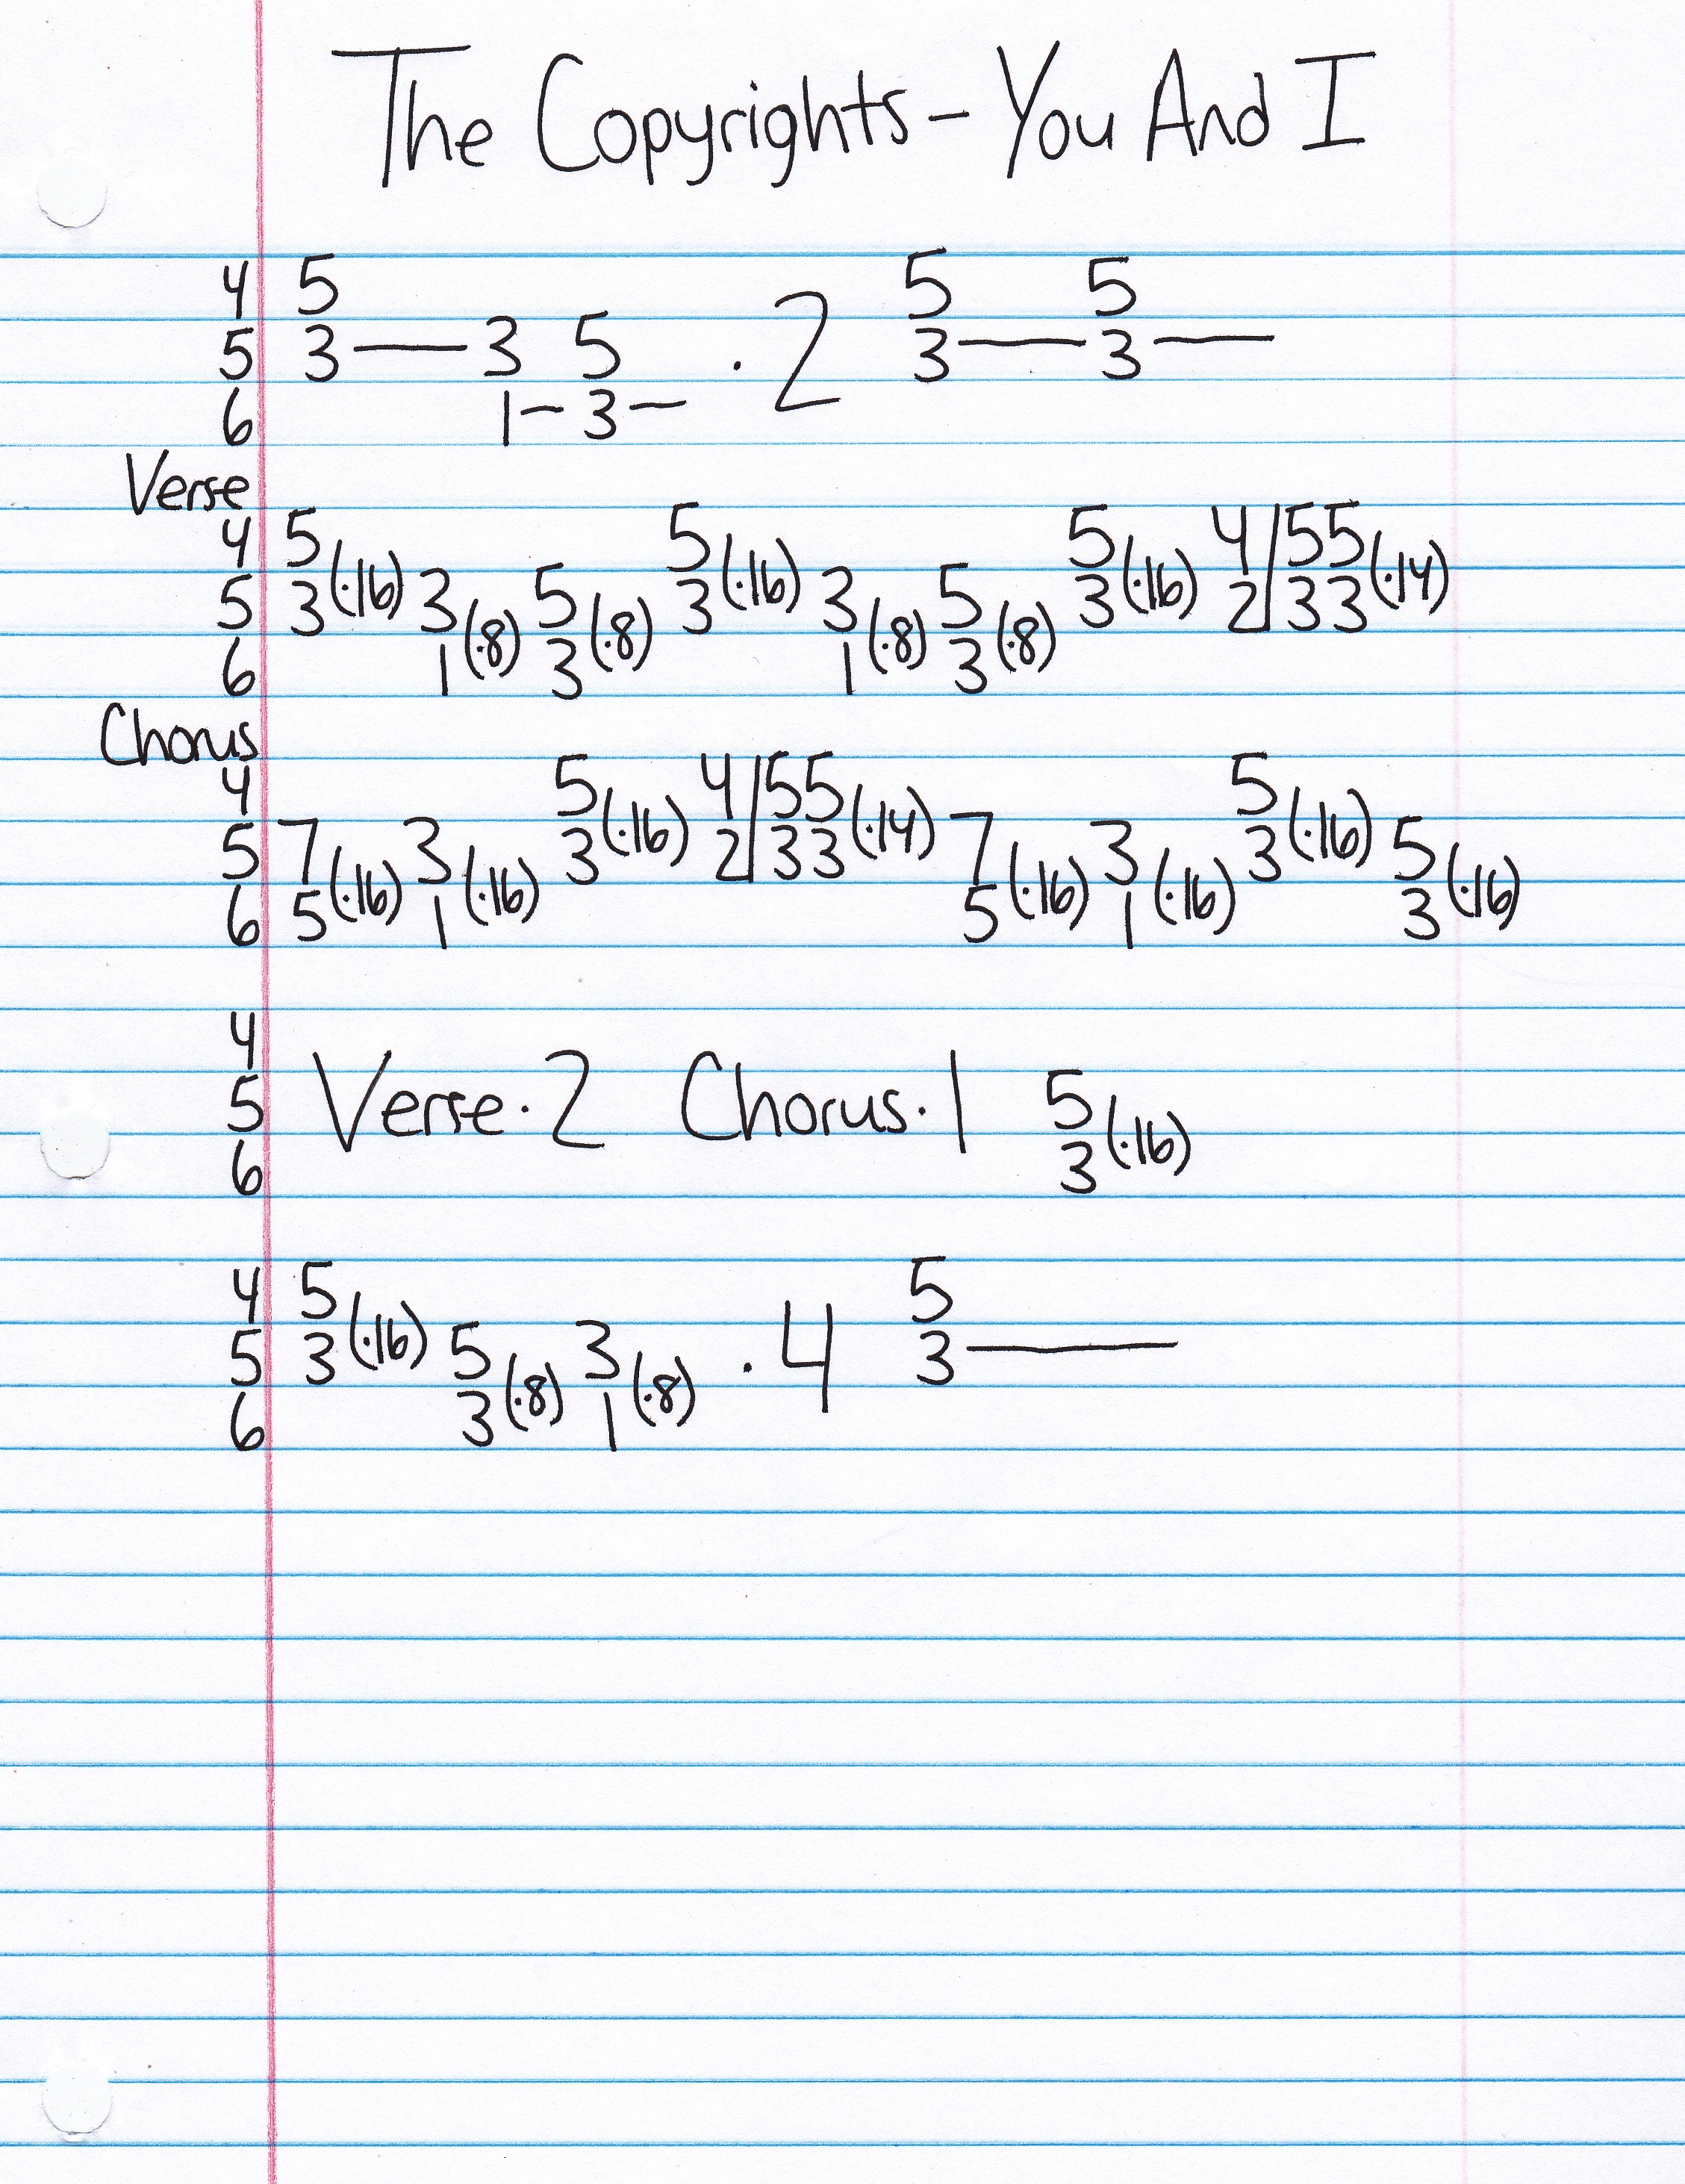 The Copyrights - You And I
4 5 5 5
5 3 — 3 5 · 2 3 — 3 —
6 1 – 3 –
Verse
4 5 5 5 4/55
5 3(·16) 3 5 3(·16) 3 5 3(·16) 2/33(·14)
6 1(·8) 3(·8) 1(·8) 3(·8)
Chorus
4 5 4/55 5
5 7 3 3(·16) 2/33(·14) 7 3 3(·16) 5
6 5(·16) 1(·16) 5(·16) 1(·16) 3(·16)
4
5 Verse·2 Chorus·1 5
6 3(·16)
4 5 5
5 3(·16) 5 3 · 4 3 —
6 3(·8) 1(·8)